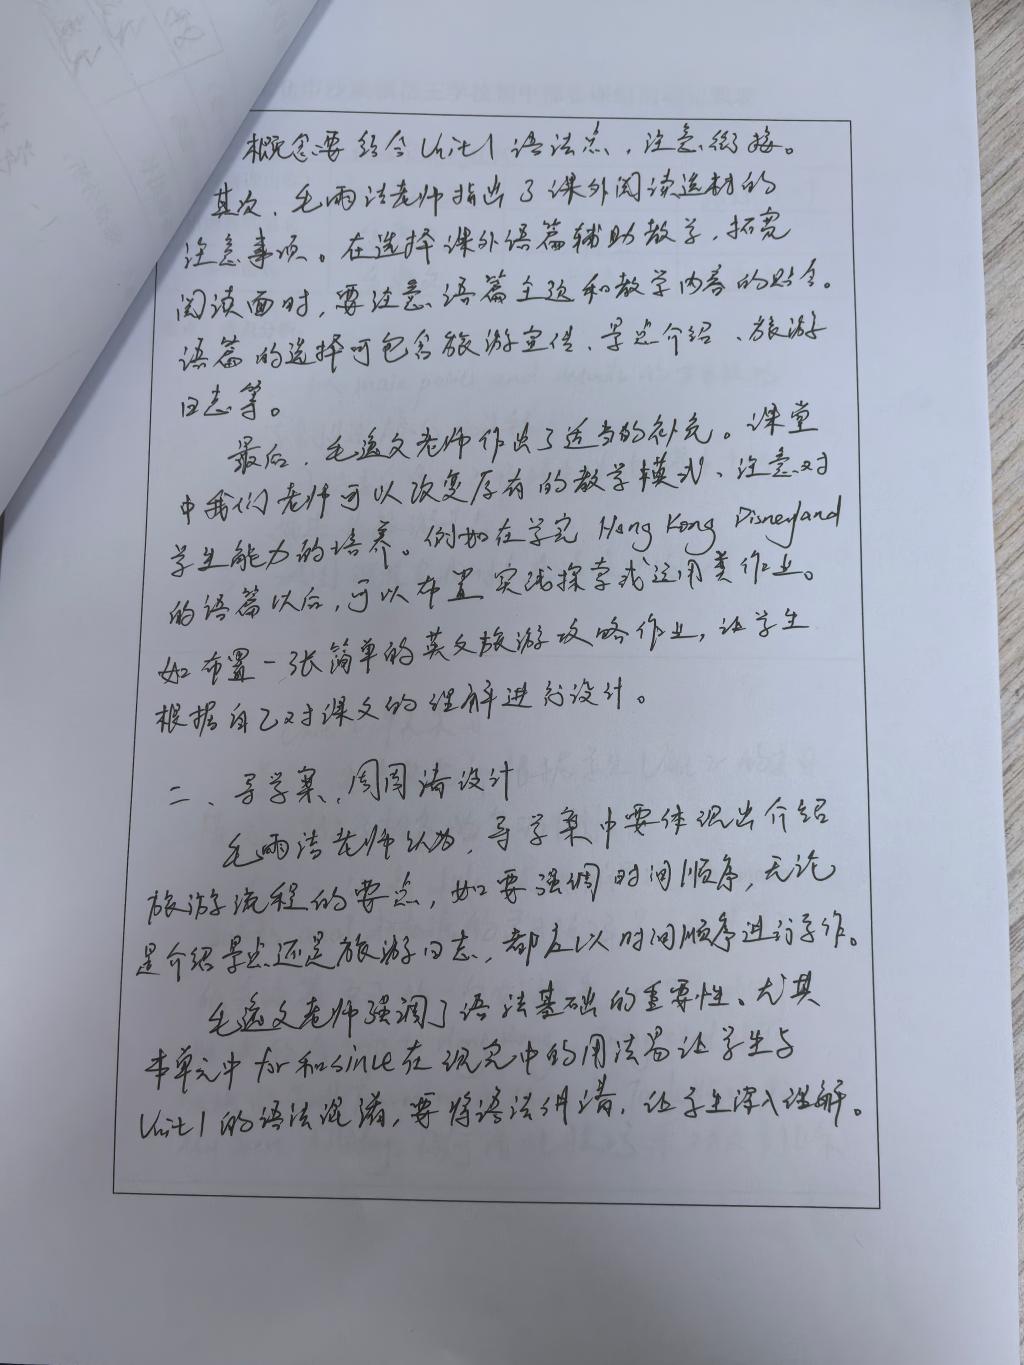 概念要结合Unit1语法点，注意衔接。
其次，毛雨洁老师指出了课外阅读选材的
注意事项。在选择课外语篇辅助教学，拓宽
阅读面时，要注意语篇主题和教学内容的贴合。
语篇的选择可包含旅游宣传、景点介绍、旅游
日志等。
最后，毛逸文老师作出了适当的补充。课堂
中我们老师可以改变原有的教学模式、注意对
学生能力的培养。例如在学完 Hong Kong Disneyland
的语篇以后，可以布置实践探索或运用类作业。
如布置一张简单的英文旅游攻略作业，让学生
根据自己对课文的理解进行设计。
二、导学案、周周清设计
毛雨洁老师认为，导学案中要体现出介绍
旅游流程的要点，如要强调时间顺序，无论
是介绍景点还是旅游日志，都应以时间顺序进行写作。
毛逸文老师强调了语法基础的重要性、尤其
本单元中for和since在现完中的用法易让学生与
Unit1的语法混淆，要将语法讲清，让学生深入理解。